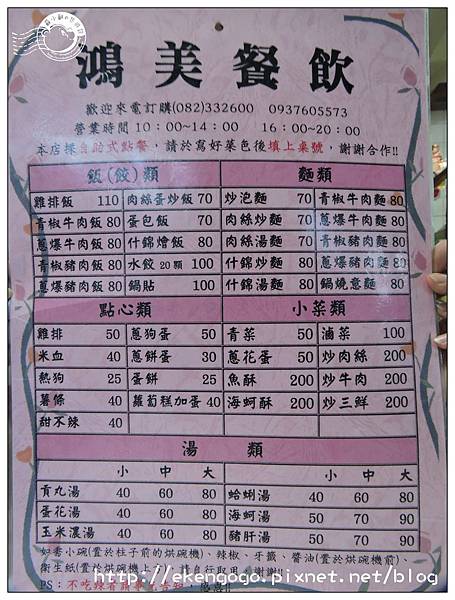 鴻美餐飲
歡迎來電訂購(082)332600 0937605573
營業時間 10：00~14：00 16：00~20：00
本店採自助式點餐，請於寫好菜色後填上桌號，謝謝合作!!
飯(餃)類 麵類
雞排飯 110 肉絲蛋炒飯 70 炒泡麵 70 青椒牛肉麵 80
青椒牛肉飯 80 蛋包飯 70 肉絲炒麵 70 蔥爆牛肉麵 80
蔥爆牛肉飯 80 什錦燴飯 80 肉絲湯麵 70 青椒豬肉麵 80
青椒豬肉飯 80 水餃 20顆 100 什錦炒麵 80 蔥爆豬肉麵 80
蔥爆豬肉飯 80 鍋貼 100 什錦湯麵 80 鍋燒意麵 80
點心類 小菜類
雞排 50 蔥狗蛋 50 青菜 50 滷菜 100
米血 40 蔥餅蛋 30 蔥花蛋 50 炒肉絲 200
熱狗 25 蛋餅 25 魚酥 200 炒牛肉 200
薯條 40 蘿蔔糕加蛋 40 海蚵酥 200 炒三鮮 200
甜不辣 40
湯類
小 中 大 小 中 大
貢丸湯 40 60 80 蛤蜊湯 40 60 80
蛋花湯 40 60 80 海蚵湯 50 70 90
玉米濃湯 40 60 80 豬肝湯 50 70 90
如需小碗(置於柱子前的烘碗機)、辣椒、牙籤、醬油(置於烘碗機前)
衛生紙(置於烘碗機上方)，請自行取用，謝謝!!
PS：不吃辣者
http://ekengogo.pixnet.net/blog